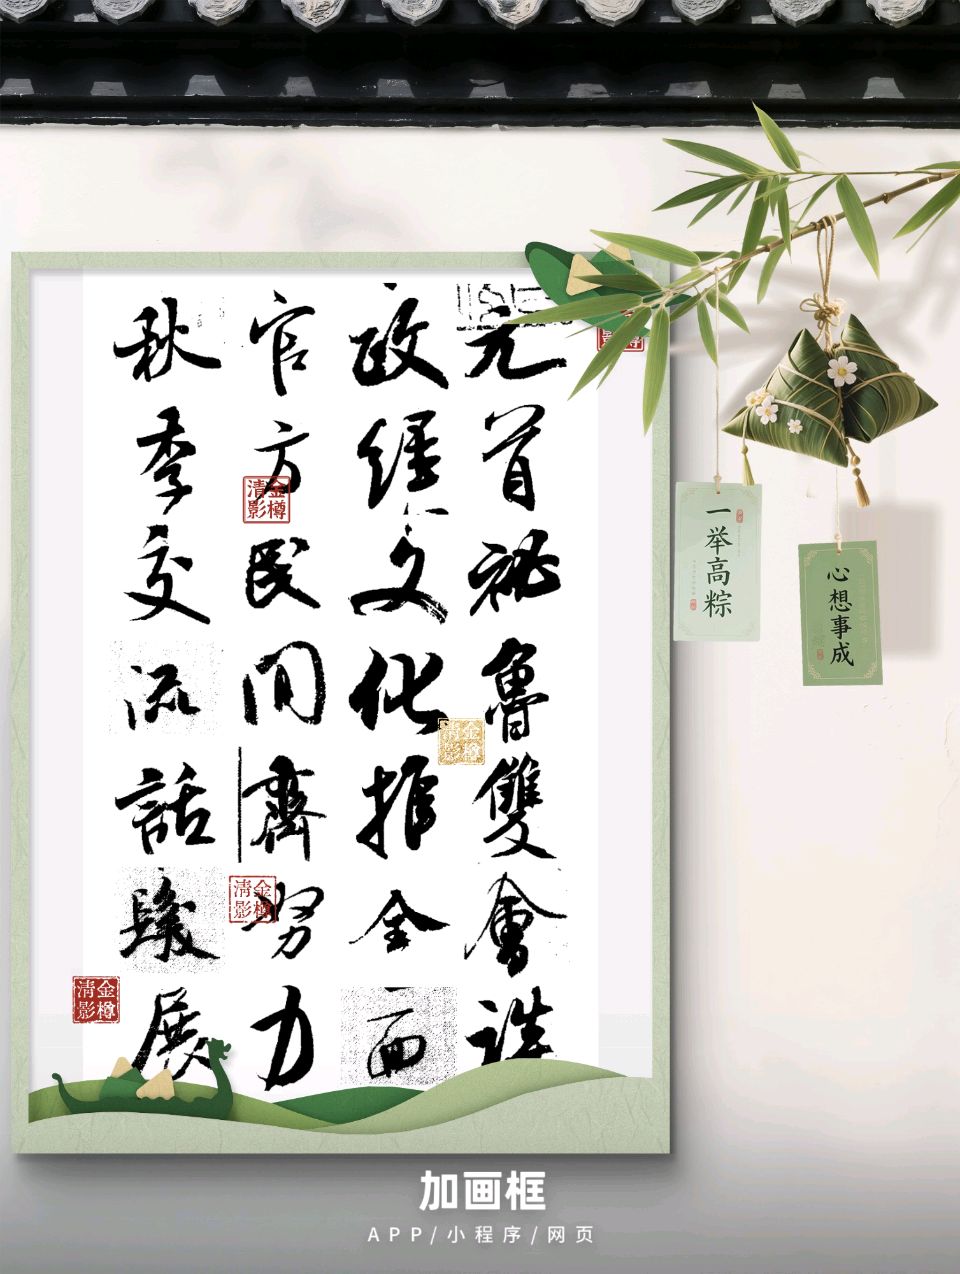 元首祕魯雙會
政經文化推全面
官方民間齊努力
秋季交流話展
金樽清影
金樽清影
金樽清影
金樽清影
一举高粽
心想事成
加画框
APP/小程序/网页